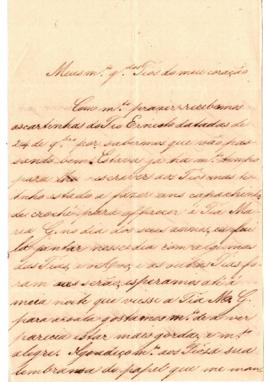 Meus m.tos q.dos Tios do meu coração
Com m.to prazer recebemos
as cartinhas do Tio Ernesto datadas de
24 de por sabermos que vão pas
sando bem. Estive já ha m.to tempo
para escrever aos Tios mas te
nho estado a fazer uns
de crochet para offerecer á Tia Ma
ria G. no dia dos seus annos, eu fui
lá jantar nesse dia com algumas
das Tias, e as outras Tias fo
ram ao serão, esperamos até á
meia noite que viesse a Tia M.a G.
para a gostamos m.to de a ver
parecia estar mais gorda, e m.to
alegre. Agradeço m.to aos Tios a sua
lembrança do papel que me man